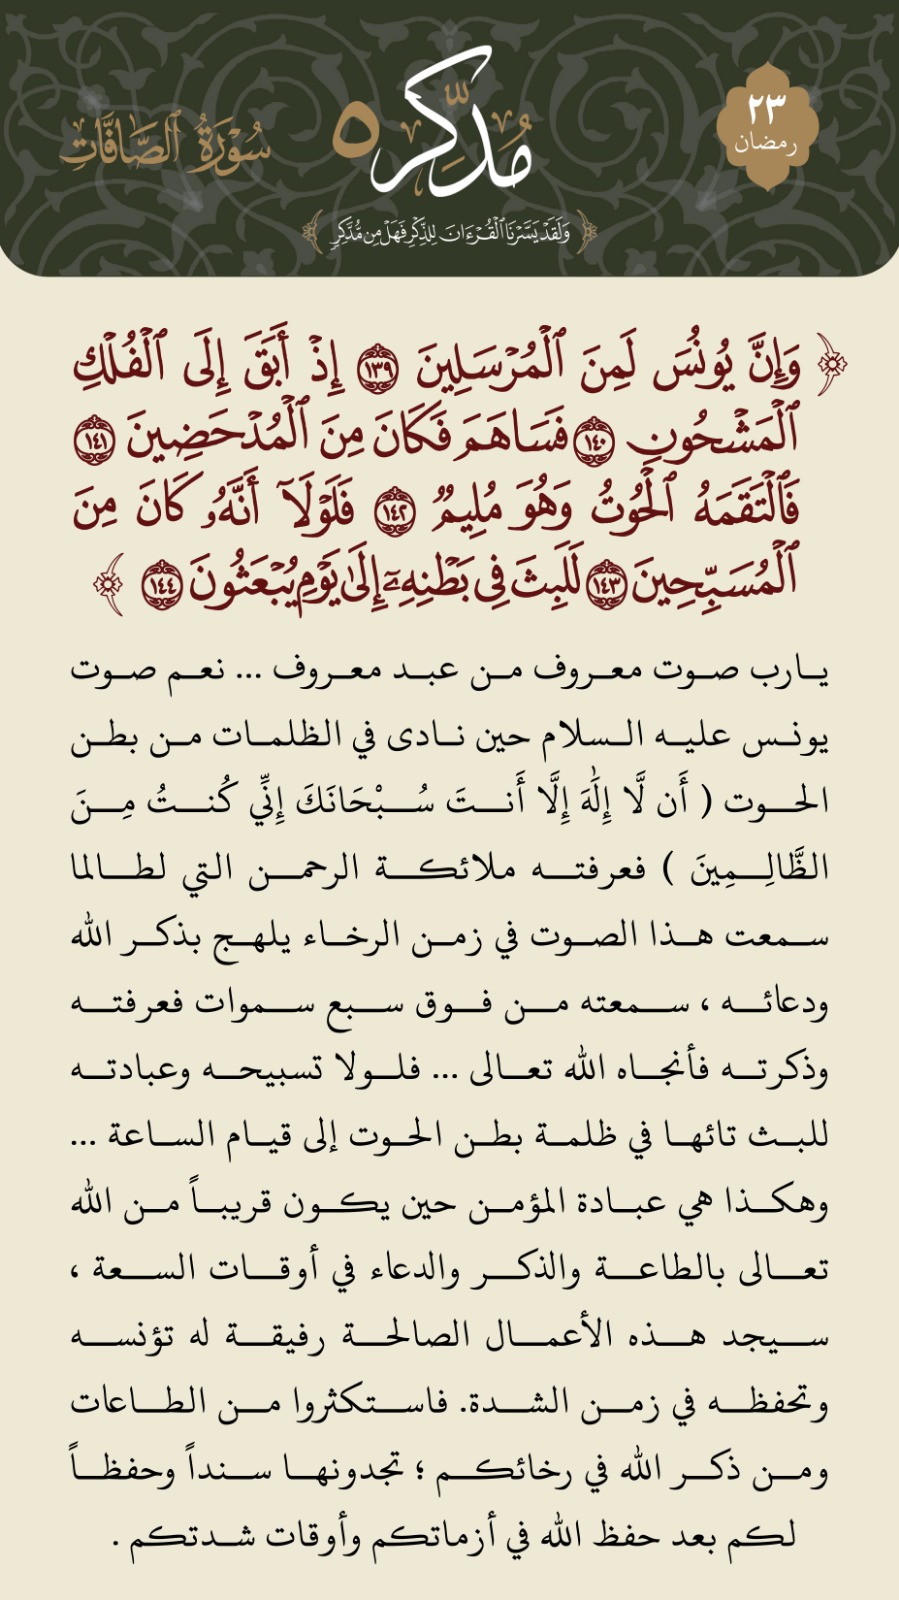 ٢٣
رمضان
مُدَّكِر ٥
سُورَةُ الصَّافَّاتِ
﴿ وَلَقَدْ يَسَّرْنَا ٱلْقُرْءَانَ لِلذِّكْرِ فَهَلْ مِن مُّدَّكِرٍ ﴾
﴿ وَإِنَّ يُونُسَ لَمِنَ ٱلْمُرْسَلِينَ ١٣٩ إِذْ أَبَقَ إِلَى ٱلْفُلْكِ
ٱلْمَشْحُونِ ١٤٠ فَسَاهَمَ فَكَانَ مِنَ ٱلْمُدْحَضِينَ ١٤١
فَٱلْتَقَمَهُ ٱلْحُوتُ وَهُوَ مُلِيمٌ ١٤٢ فَلَوْلَآ أَنَّهُۥ كَانَ مِنَ
ٱلْمُسَبِّحِينَ ١٤٣ لَلَبِثَ فِى بَطْنِهِۦٓ إِلَىٰ يَوْمِ يُبْعَثُونَ ١٤٤ ﴾
يارب صوت معروف من عبد معروف ... نعم صوت
يونس عليه السلام حين نادى في الظلمات من بطن
الحوت ( أَن لَّا إِلَٰهَ إِلَّا أَنتَ سُبْحَانَكَ إِنِّي كُنتُ مِنَ
الظَّالِمِينَ ) فعرفته ملائكة الرحمن التي لطالما
سمعت هذا الصوت في زمن الرخاء يلهج بذكر الله
ودعائه ، سمعته من فوق سبع سموات فعرفته
وذكرته فأنجاه الله تعالى ... فلولا تسبيحه وعبادته
للبث تائها في ظلمة بطن الحوت إلى قيام الساعة ...
وهكذا هي عبادة المؤمن حين يكون قريباً من الله
تعالى بالطاعة والذكر والدعاء في أوقات السعة ،
سيجد هذه الأعمال الصالحة رفيقة له تؤنسه
وتحفظه في زمن الشدة. فاستكثروا من الطاعات
ومن ذكر الله في رخائكم ؛ تجدونها سنداً وحفظاً
لكم بعد حفظ الله في أزماتكم وأوقات شدتكم .